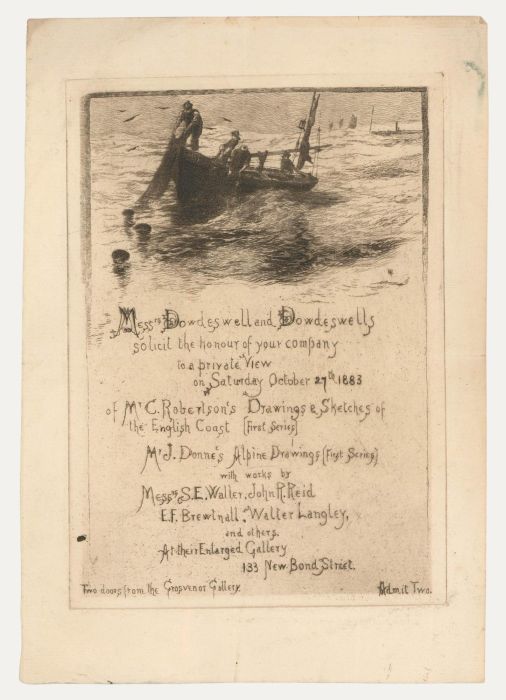 Messrs Dowdeswell and Dowdeswells
solicit the honour of your company
to a private View
on Saturday October 27th 1883
of Mr C. Robertson's Drawings & Sketches of
the English Coast [First Series]
Mr J. Donne's Alpine Drawings [First Series]
with works by
Messrs S.E. Waller, John R. Reid
E.F. Brewtnall, Walter Langley,
and others.
At their Enlarged Gallery
133 New Bond Street.
Two doors from the Grosvenor Gallery.
Admit Two.